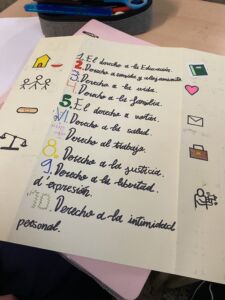 1. El derecho a la Educación.
2. Derecho a comida y alojamiento
3. Derecho a la vida.
4 Derecho a la familia.
5. El derecho a votar.
VI. Derecho a la salud.
7. Derecho al trabajo.
8. Derecho a la justicia.
9. Derecho a la libertad.
d'expresión.
10. Derecho a la intimidad
personal.